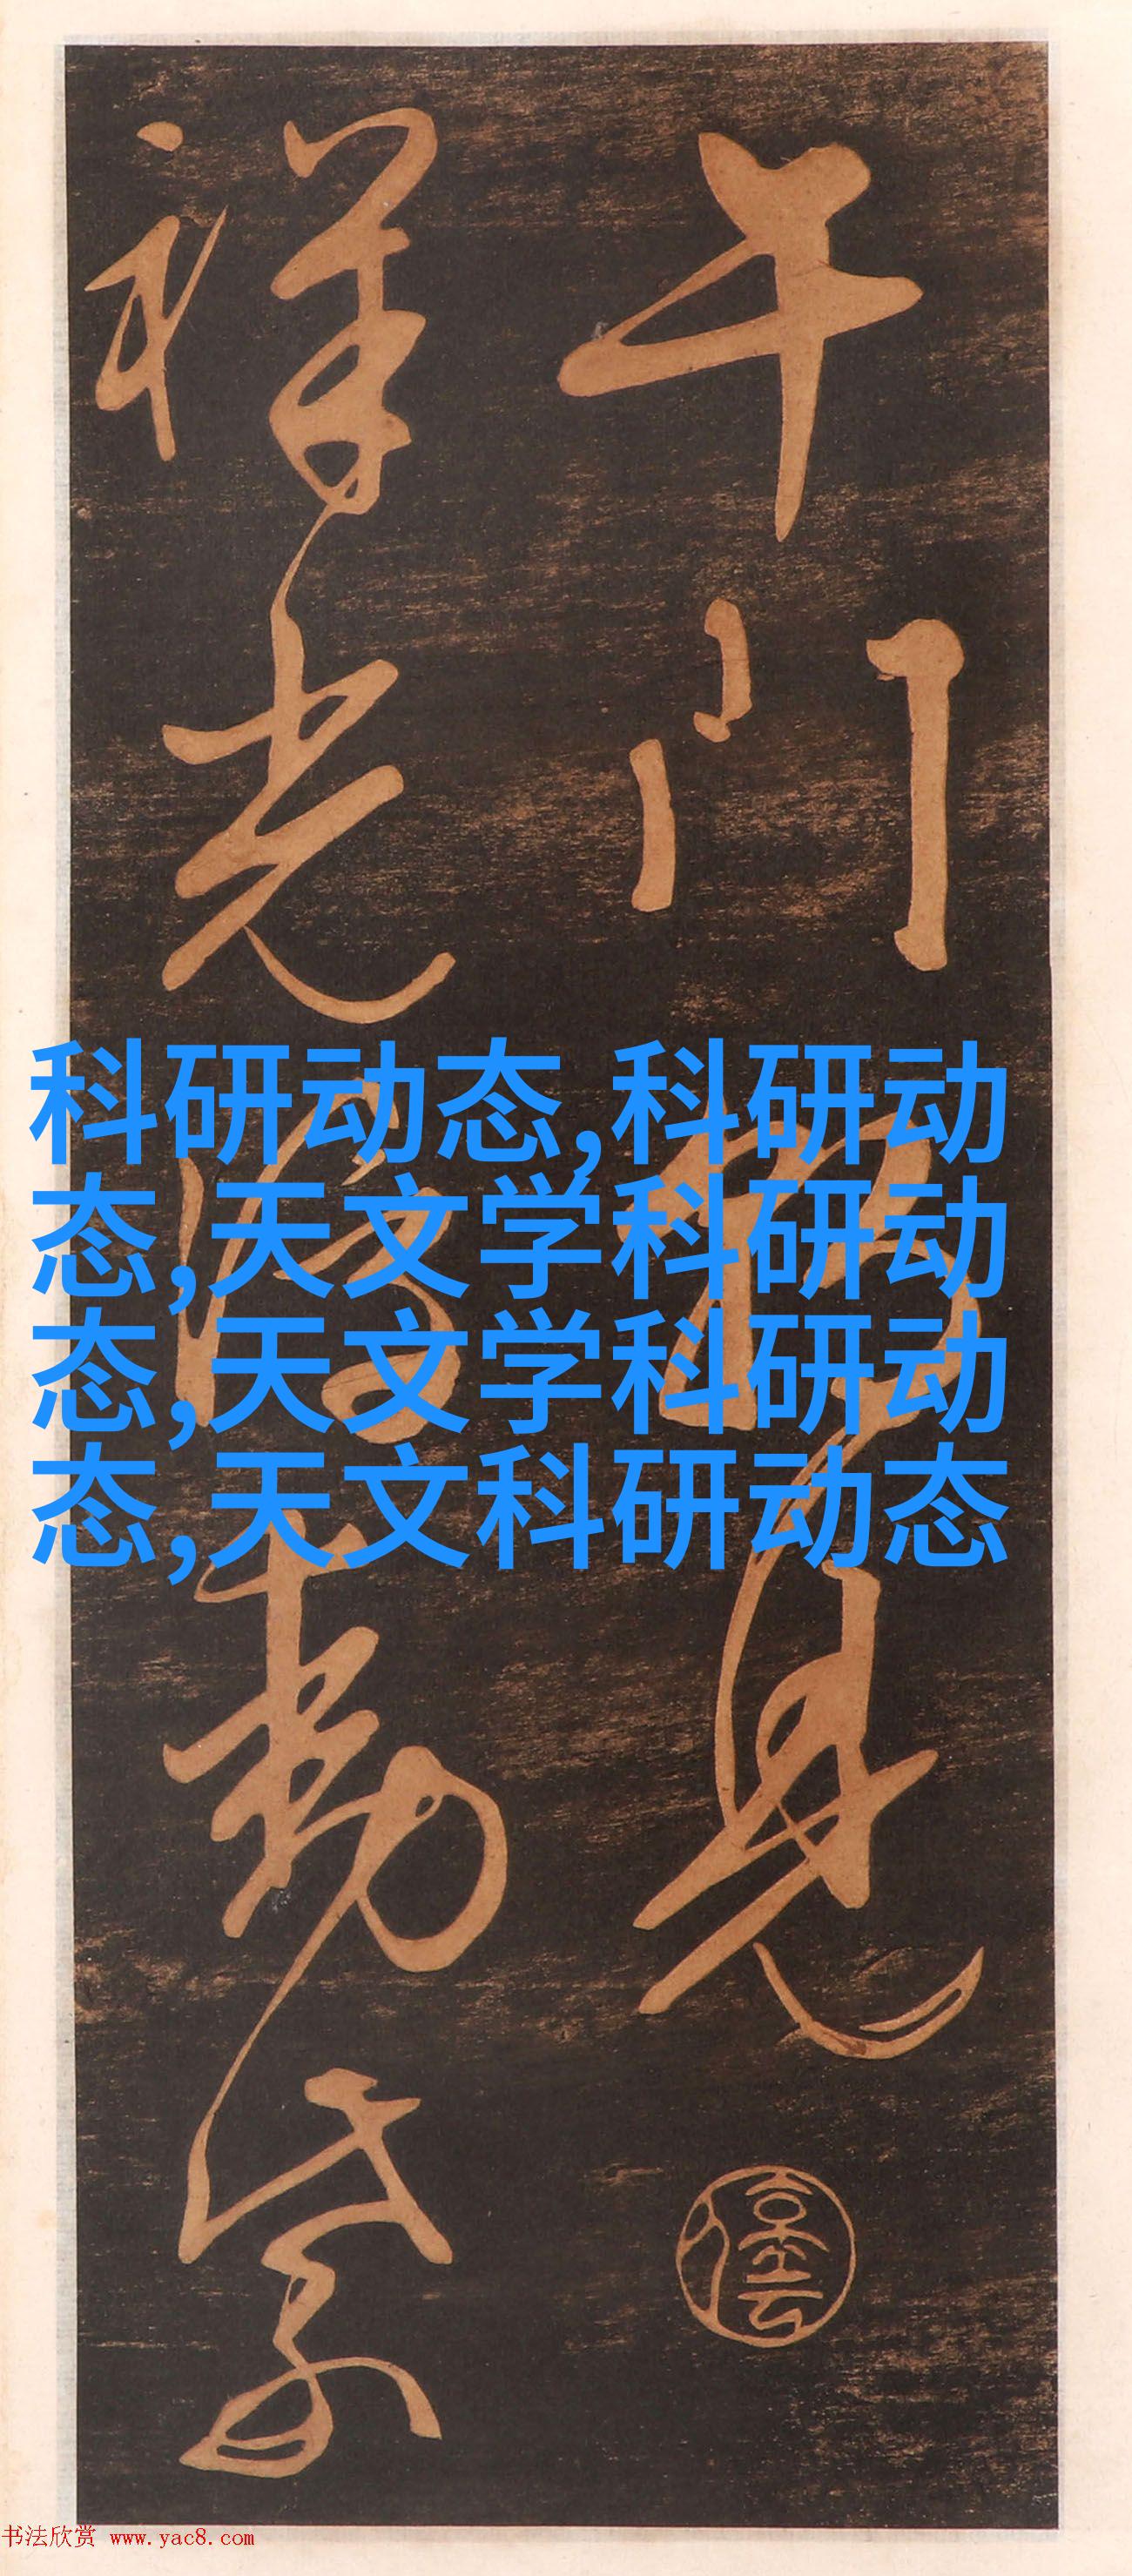 午門見
祥光浮動紫
科研动态,科研动
态,天文学科研动
态,天文学科研动
态,天文科研动态
书法欣赏 www.yac8.com